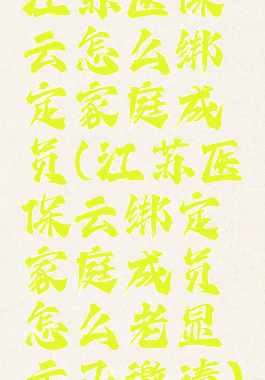 江苏医保
云怎么绑
定家庭成
员(江苏医
保云绑定
家庭成员
怎么老显
示正邀请)